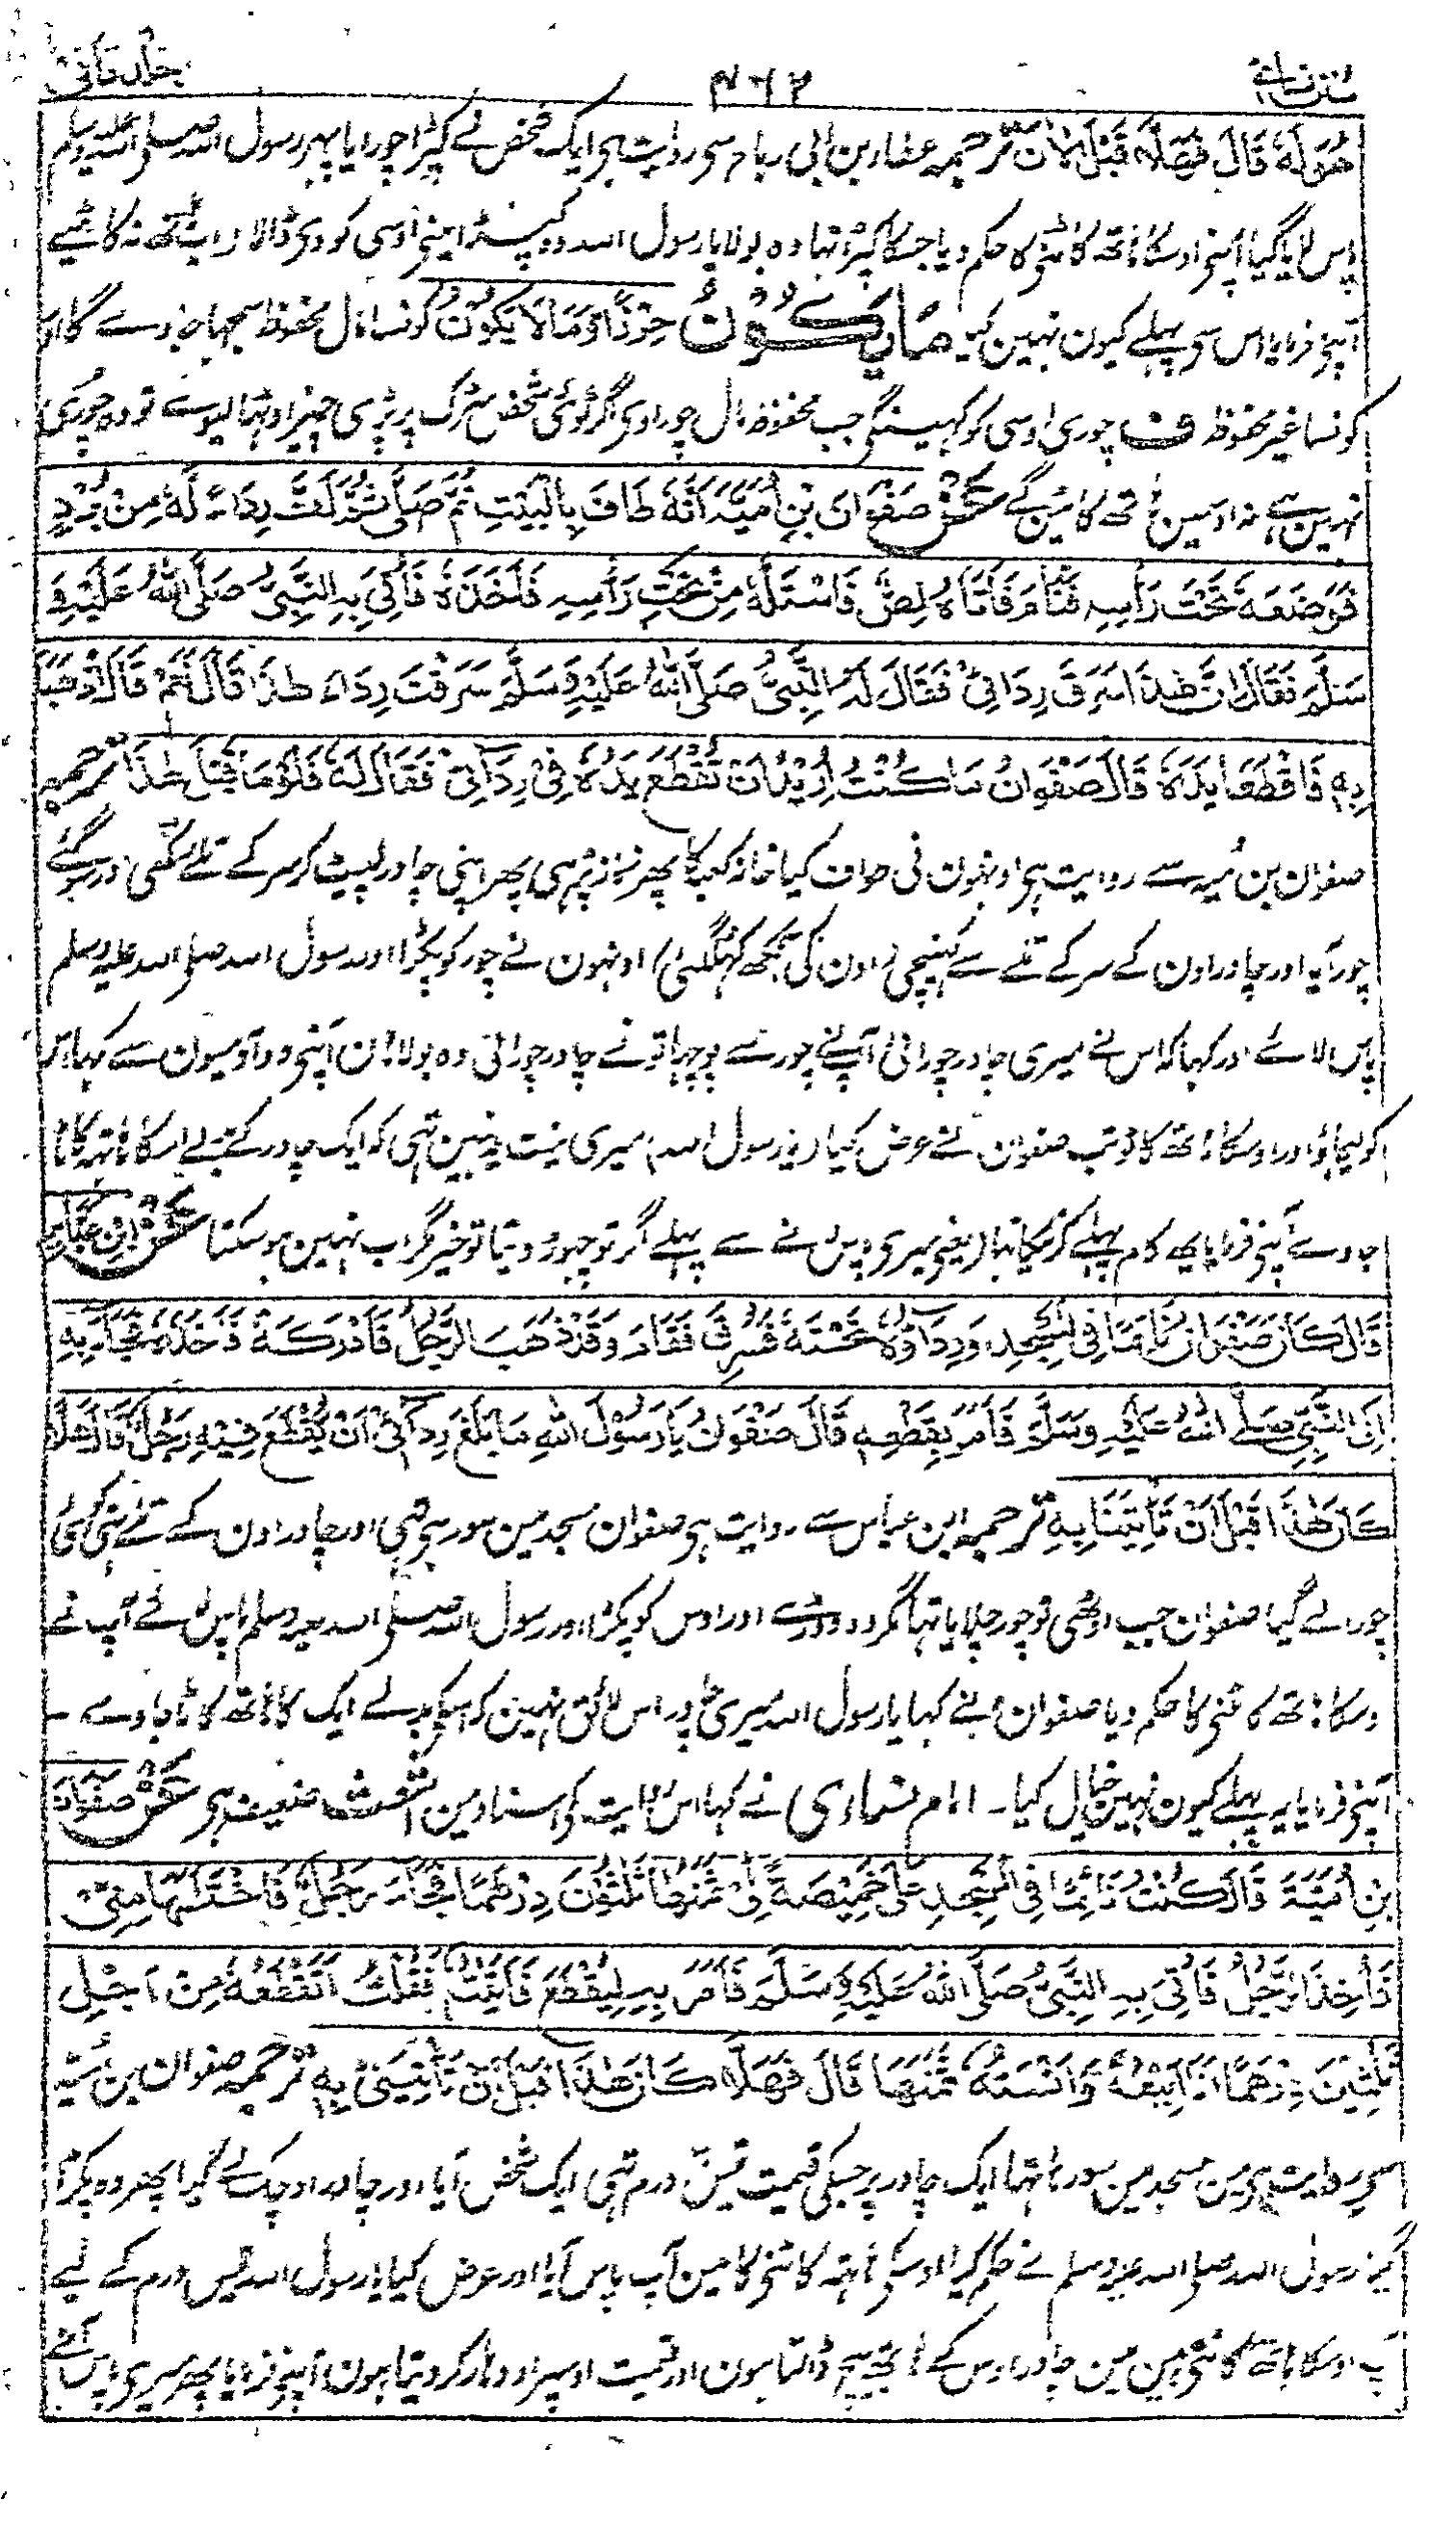 سنن نسائی
۴۶۲
جلد ثانی
هُوَ لَهٗ قَالَ فَهَلَّا قَبْلَ الْاٰنَ ترجمہ عطاء بن ابی رباح سی روایت ہی ایک شخص نے کپڑا چورایا پہر رسول اللہ صلی اللہ علیہ وسلم
پاس لایا گیا آپنی اوسکا ہاتھ کاٹنی کا حکم دیا جسکا کپڑا تہا وہ بولا یا رسول اللہ وہ کپڑا مینی اوسی کو دی ڈالا اب ہاتھ نہ کاٹیے
آپنی فرمایا اس سی پہلے کیون نہین کیا مَا يَكُوْنُ حِرْزًا وَّمَا لَا يَكُوْنُ کونسا مال محفوظ سمجہا جاوے گا اور
کونسا غیر محفوظ ف چوری اوسی کو کہینگی جب محفوظ مال چوراوی اگر کوئی شخص سڑک پر پڑی چیز اوٹہا لیوے تو وہ چوری
نہین ہے نہ اوسمین ہاتھ کاٹین گے عَنْ صَفْوَانَ بْنِ اُمَيَّةَ اَنَّهٗ طَافَ بِالْبَيْتِ ثُمَّ صَلّٰى ثُمَّ لَفَّ رِدَاءً لَّهٗ مِنْ بُرْدٍ
فَوَضَعَهٗ تَحْتَ رَاْسِهٖ فَنَامَ فَاَتَاهُ لِصٌّ فَاسْتَلَّهٗ مِنْ تَحْتِ رَاْسِهٖ فَاَخَذَهٗ فَاُتِيَ بِهِ النَّبِيُّ صَلَّى اللّٰهُ عَلَيْهِ وَ
سَلَّمَ فَقَالَ اِنَّ هٰذَا سَرَقَ رِدَائِيْ فَقَالَ لَهُ النَّبِيُّ صَلَّى اللّٰهُ عَلَيْهِ وَسَلَّمَ سَرَقْتَ رِدَاءَ هٰذَا قَالَ نَعَمْ قَالَ اذْهَبَا
بِهٖ فَاقْطَعَا يَدَهٗ قَالَ صَفْوَانُ مَا كُنْتُ اُرِيْدُ اَنْ تُقْطَعَ يَدُهٗ فِيْ رِدَائِيْ فَقَالَ لَهٗ فَلَوْ مَا قَبْلَ هٰذَا ترجمہ
صفوان بن امیہ سے روایت ہی اونہون نی طواف کیا خانہ کعبہ کا پھر نماز پڑہی پھر اپنی چادر لپیٹ کر سر کے تلے رکھی اور سوگئے
چور آیا اور چادر اون کے سر کے تلے سے کہینچی (اون کی آنکھ کہلگئی) اونہون نے چور کو پکڑا اور رسول اللہ صلی اللہ علیہ وسلم
پاس لائے اور کہا کہ اس نے میری چادر چورائی آپنے چور سے پوچہا تو نے چادر چورائی وہ بولا ہان آپنی دو آدمیون سے کہا اس
کو لیجاؤ اور اوسکا ہاتھ کاٹو تب صفوان نے عرض کیا یا رسول اللہ میری نیت یہ نہین تہی کہ ایک چادر کے بدلے اسکا ہاتھ کاٹا
جاوے آپنی فرمایا یہ کام پہلے کرنیکا تہا (یعنی میری پاس لانے سے پہلے اگر تو چہوڑ دیتا تو خیر مگر اب نہین ہو سکتا عَنِ ابْنِ عَبَّاسٍ
قَالَ كَانَ صَفْوَانُ نَائِمًا فِي الْمَسْجِدِ وَرِدَاؤُهٗ تَحْتَهٗ فَسُرِقَ فَقَامَ وَقَدْ ذَهَبَ الرَّجُلُ فَاَدْرَكَهٗ فَاَخَذَهٗ فَجَاءَ بِهٖ
اِلَى النَّبِيِّ صَلَّى اللّٰهُ عَلَيْهِ وَسَلَّمَ فَاَمَرَ بِقَطْعِهٖ قَالَ صَفْوَانُ يَا رَسُوْلَ اللّٰهِ مَا بَلَغَ رِدَائِيْ اَنْ يُّقْطَعَ فِيْهِ رَجُلٌ قَالَ هَلَّا
كَانَ هٰذَا قَبْلَ اَنْ تَاْتِيَنَا بِهٖ ترجمہ ابن عباس سے روایت ہی صفوان مسجد مین سو رہی تہی اور چادر اون کے تلے تہی کوئی
چور لے گیا صفوان جب اوٹھی تو چور چلا گیا تہا مگر وہ دوڑے اور اوس کو پکڑا اور رسول اللہ صلی اللہ علیہ وسلم پاس لائے آپ نے
اوسکا ہاتھ کاٹنی کا حکم دیا صفوان نے کہا یا رسول اللہ میری چادر اس لائق نہین کہ اسکے بدلے ایک کا ہاتھ کاٹا جاوے ۔
آپنی فرمایا یہ پہلے کیون نہین خیال کیا ۔ امام نسائی نے کہا اس روایت کی اسناد مین اشعث ضعیف ہی عَنْ صَفْوَانَ
بْنِ اُمَيَّةَ قَالَ كُنْتُ نَائِمًا فِي الْمَسْجِدِ عَلٰى خَمِيْصَةٍ لِّيْ ثَمَنُهَا ثَلٰثُوْنَ دِرْهَمًا فَجَاءَ رَجُلٌ فَاخْتَلَسَهَا مِنِّيْ
فَاُخِذَ الرَّجُلُ فَاُتِيَ بِهِ النَّبِيُّ صَلَّى اللّٰهُ عَلَيْهِ وَسَلَّمَ فَاَمَرَ بِهٖ لِيُقْطَعَ فَاَتَيْتُهٗ فَقُلْتُ اَتَقْطَعُهٗ مِنْ اَجْلِ
ثَلٰثِيْنَ دِرْهَمًا اَنَا اَبِيْعُهٗ وَاُنْسِئُهٗ ثَمَنَهَا قَالَ فَهَلَّا كَانَ هٰذَا قَبْلَ اَنْ تَاْتِيَنِيْ بِهٖ ترجمہ صفوان بن امیہ
سی روایت ہی مین مسجد مین سو رہا تہا ایک چادر پر جسکی قیمت تیس درم تہی ایک شخص آیا اور چادر اوچک لے گیا پھر وہ پکڑا
گیا رسول اللہ صلی اللہ علیہ وسلم نے حکم کیا اوسکی ہاتھ کاٹنی کا مین آپ پاس آیا اور عرض کیا یا رسول اللہ تیس درم کے لیے
آپ اوسکا ہاتھ کاٹتی ہین مین چادر اوس کے ہاتھ بیچ ڈالتا ہون اور قیمت اوسپر اودہار کر دیتا ہون آپنی فرمایا پھر میری پاس آنے